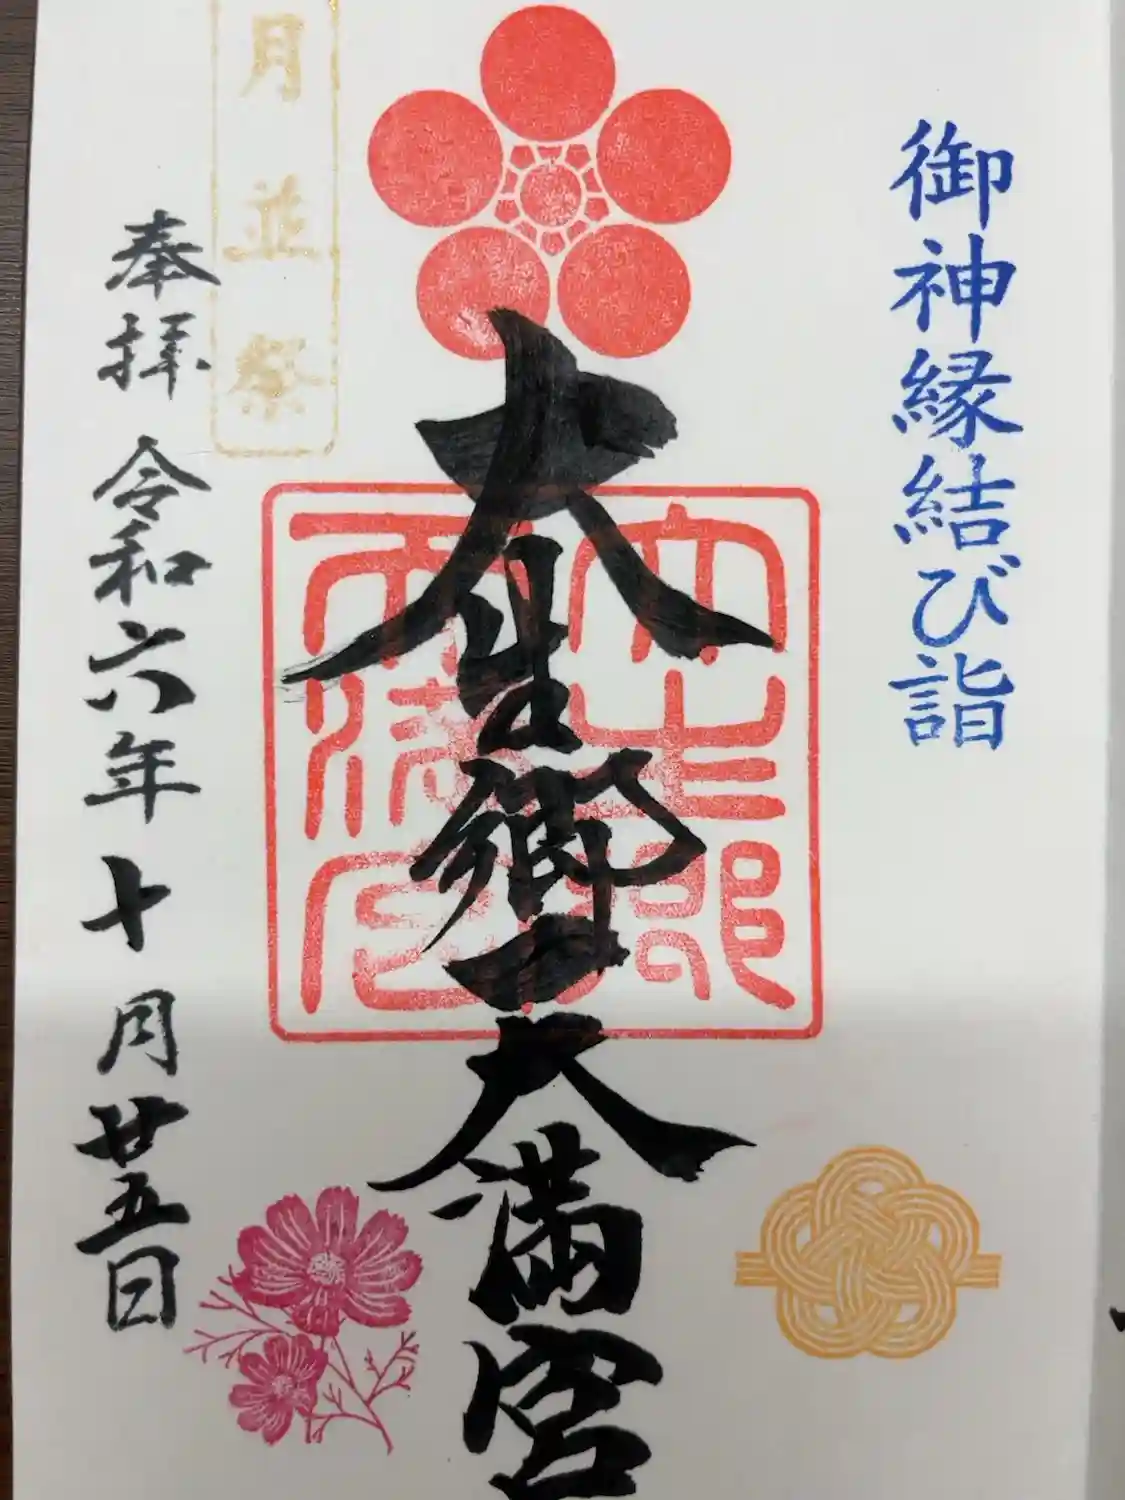 御神縁結び詣
大生郷天満宮
大生郷天満宮
月並祭
奉拝 令和六年十月廿五日